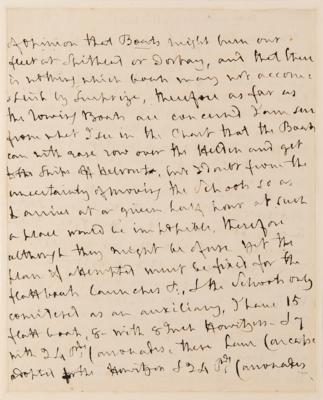 of opinion that Boats might burn our
fleet at Spithead or Torbay, and that there
is nothing which boats may not accom
=plish by Surprize, therefore as far as
the rowing Boats are concerned I am sure
from what I see in the Chart that the Boats
can with ease row over the Helder and get
to the Ships off Helvoet, but I doubt from the
uncertainty of moving the Schoots so as
to arrive at a given half hour at such
a place would be impossible, therefore
although they might be of use yet the
plan if attempted must be fixed for the
flatt boats Launches &c, & the Schoots only
considered as an auxiliary, I have 15
flatt boats, 8 with 8 Inch Howitzers & 7
with 24 Pdr. Carronades, these
adopted to the Howitzers & 24 Pdr. Carronades